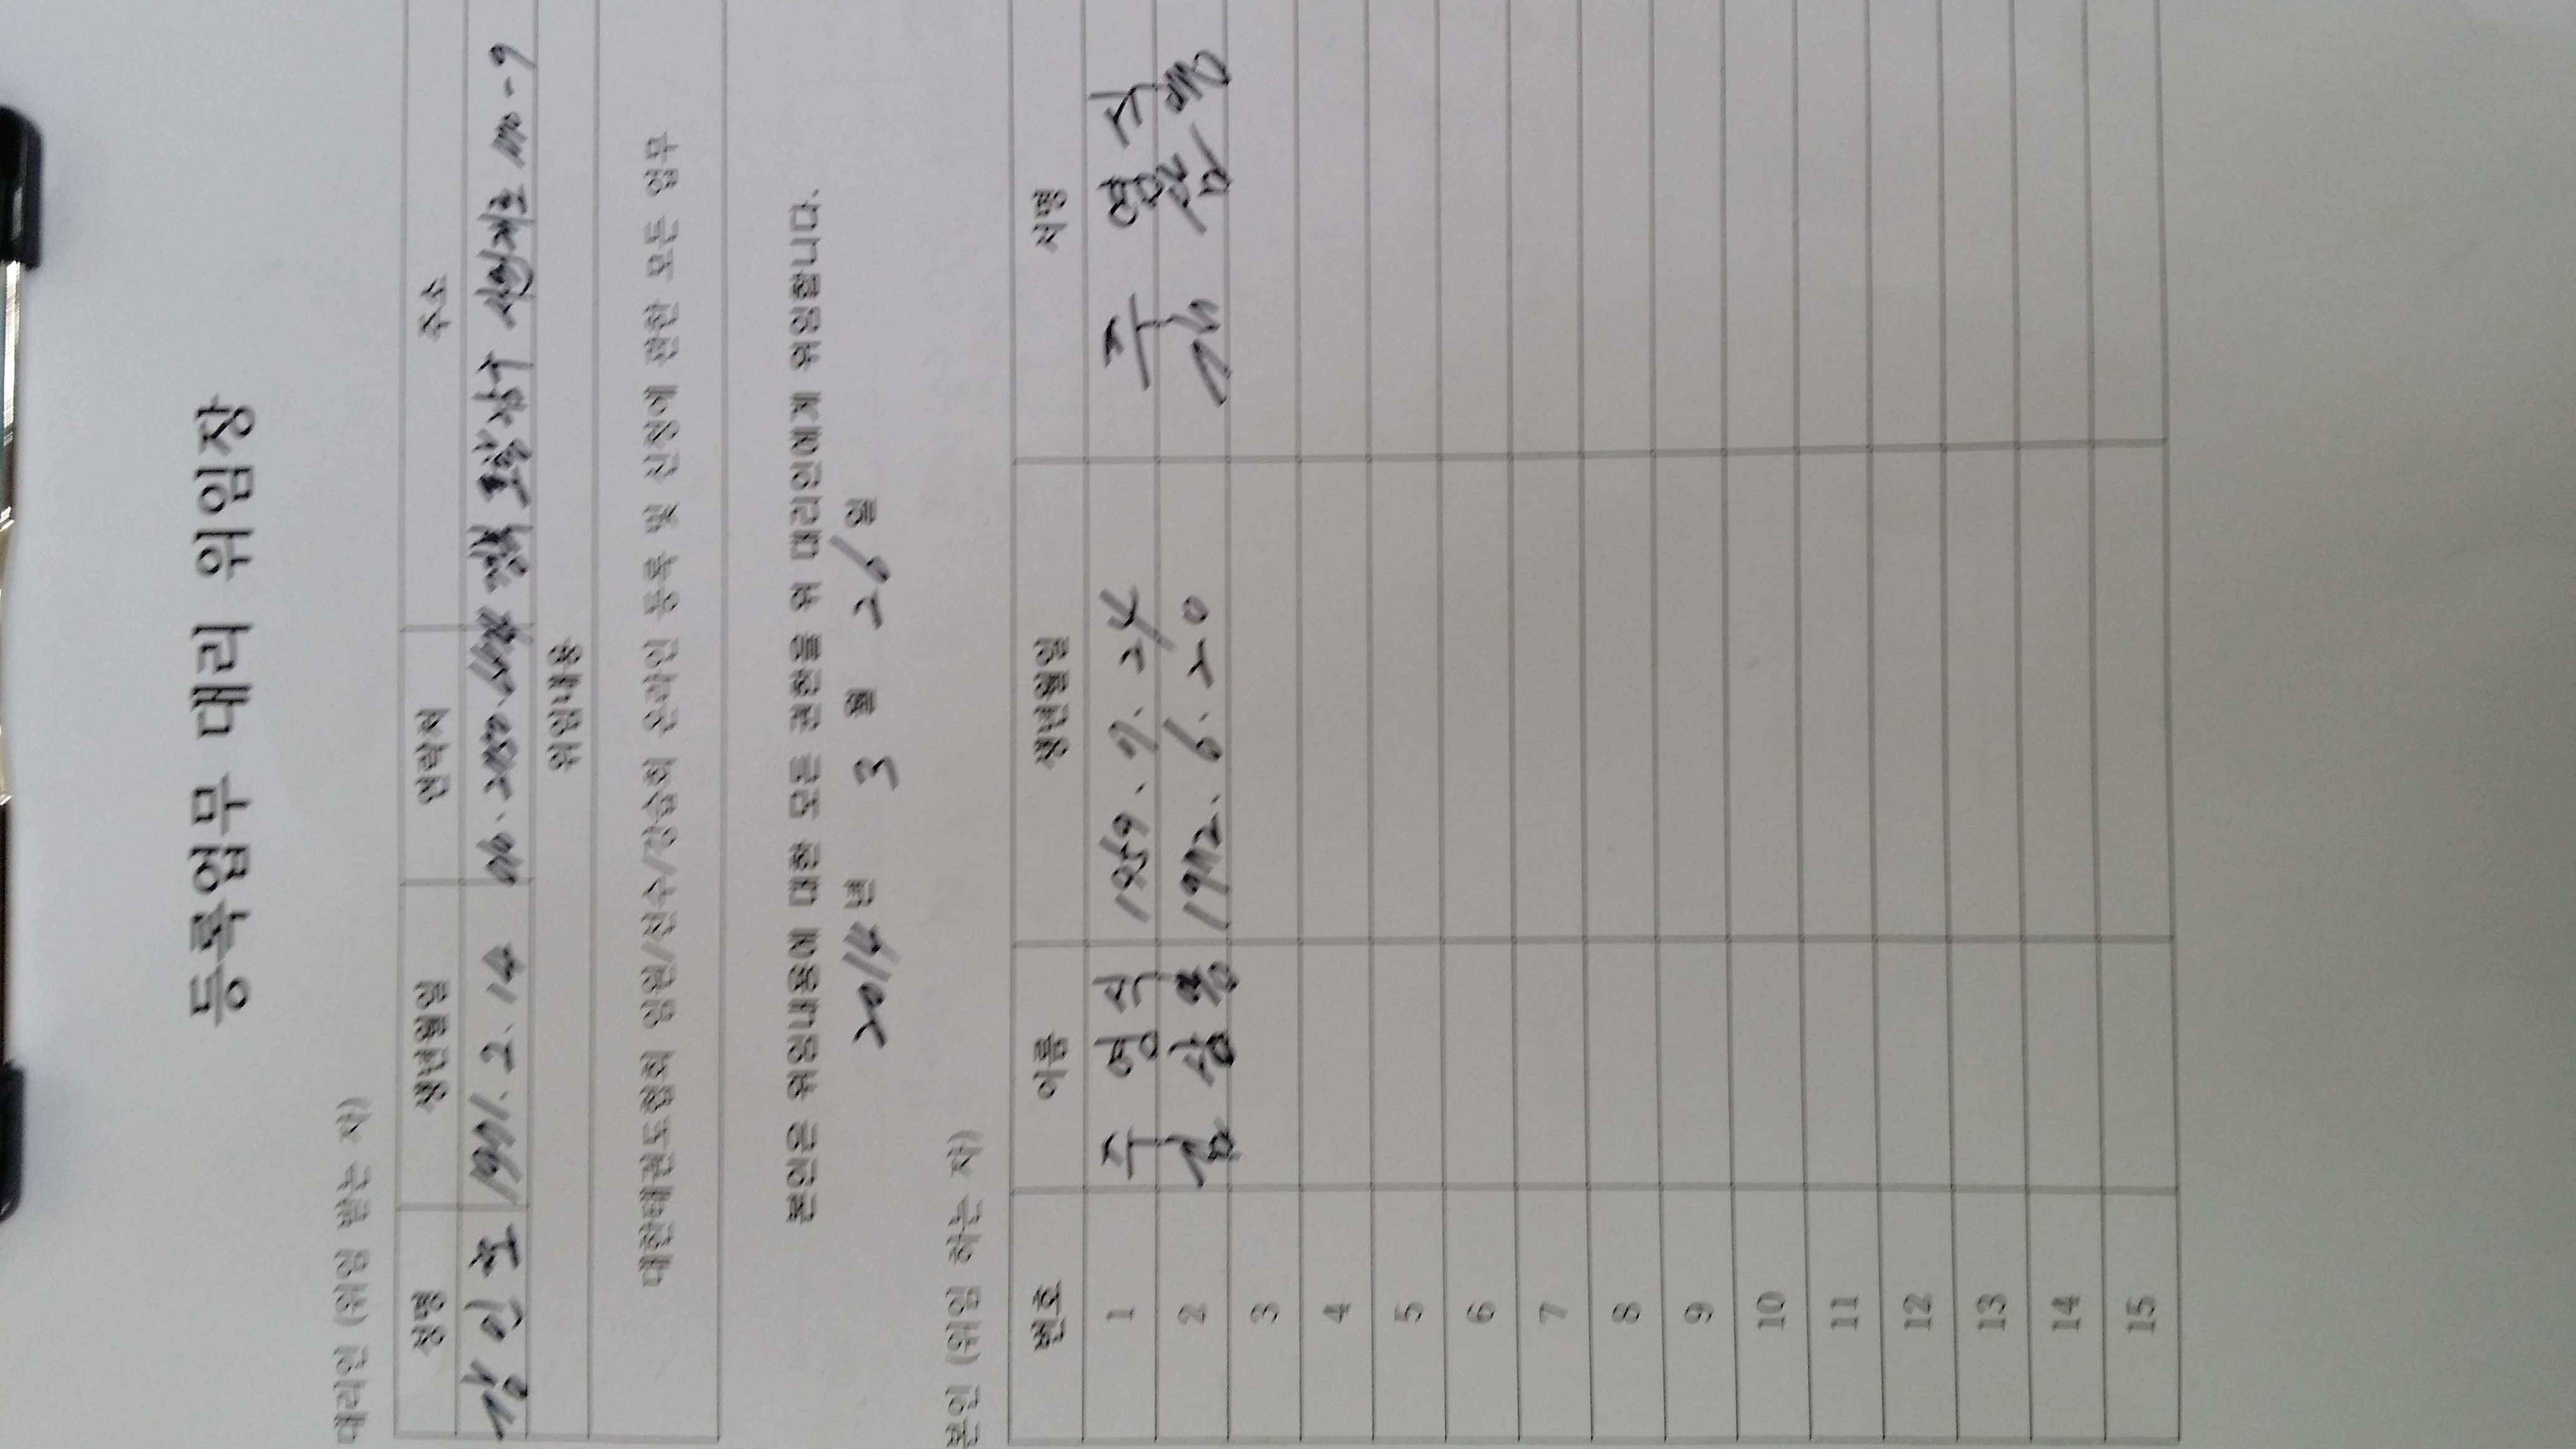 등록업무 대리 위임장
대리인 (위임 받는 자)
성명 생년월일 연락처 주소
강인호 1991. 2. 14 사벌저로 110-9
위임내용
대한태권도협회 임원/선수/강습회 온라인 등록 및 신청에 관한 모든 업무
본인은 위임내용에 대한 모든 권한을 위 대리인에게 위임합니다.
2014년 3월 26일
본인 (위임 하는 자)
번호 이름 생년월일 서명
1 주영식 1959. 7. 24 주영식
2 김삼용 1972. 6. 20
3
4
5
6
7
8
9
10
11
12
13
14
15